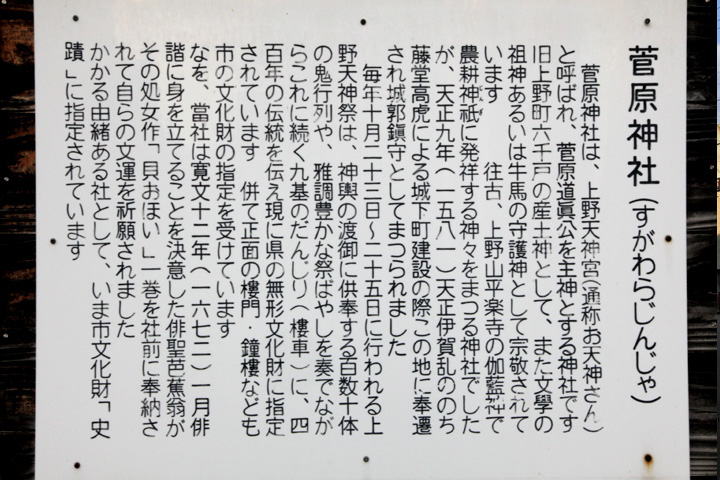 菅原神社(すがわらじんじゃ)
菅原神社は、上野天神宮(通称お天神さん)
と呼ばれ、菅原道眞公を主神とする神社です
旧上野町六千戸の産土神として、また文學の
祖神あるいは牛馬の守護神として宗敬されて
います　往古、上野山平楽寺の伽藍神で
農耕神祇に発祥する神々をまつる神社でした
が、天正九年(一五八一)天正伊賀乱ののち
藤堂高虎による城下町建設の際この地に奉遷
され城郭鎭守としてまつられました
毎年十月二十三日〜二十五日に行われる上
野天神祭は、神輿の渡御に供奉する百数十体
の鬼行列や、雅調豊かな祭ばやしを奏でなが
らこれに続く九基のだんじり(樓車)に、四
百年の伝統を伝え現に県の無形文化財に指定
されています　併て正面の樓門・鐘樓なども
市の文化財の指定を受けています
なを、當社は寛文十二年(一六七二)一月俳
諧に身を立てることを決意した俳聖芭蕉翁が
その処女作「貝おほい」一巻を社前に奉納さ
れて自らの文運を祈願されました
かかる由緒ある社として、いま市文化財「史
蹟」に指定されています